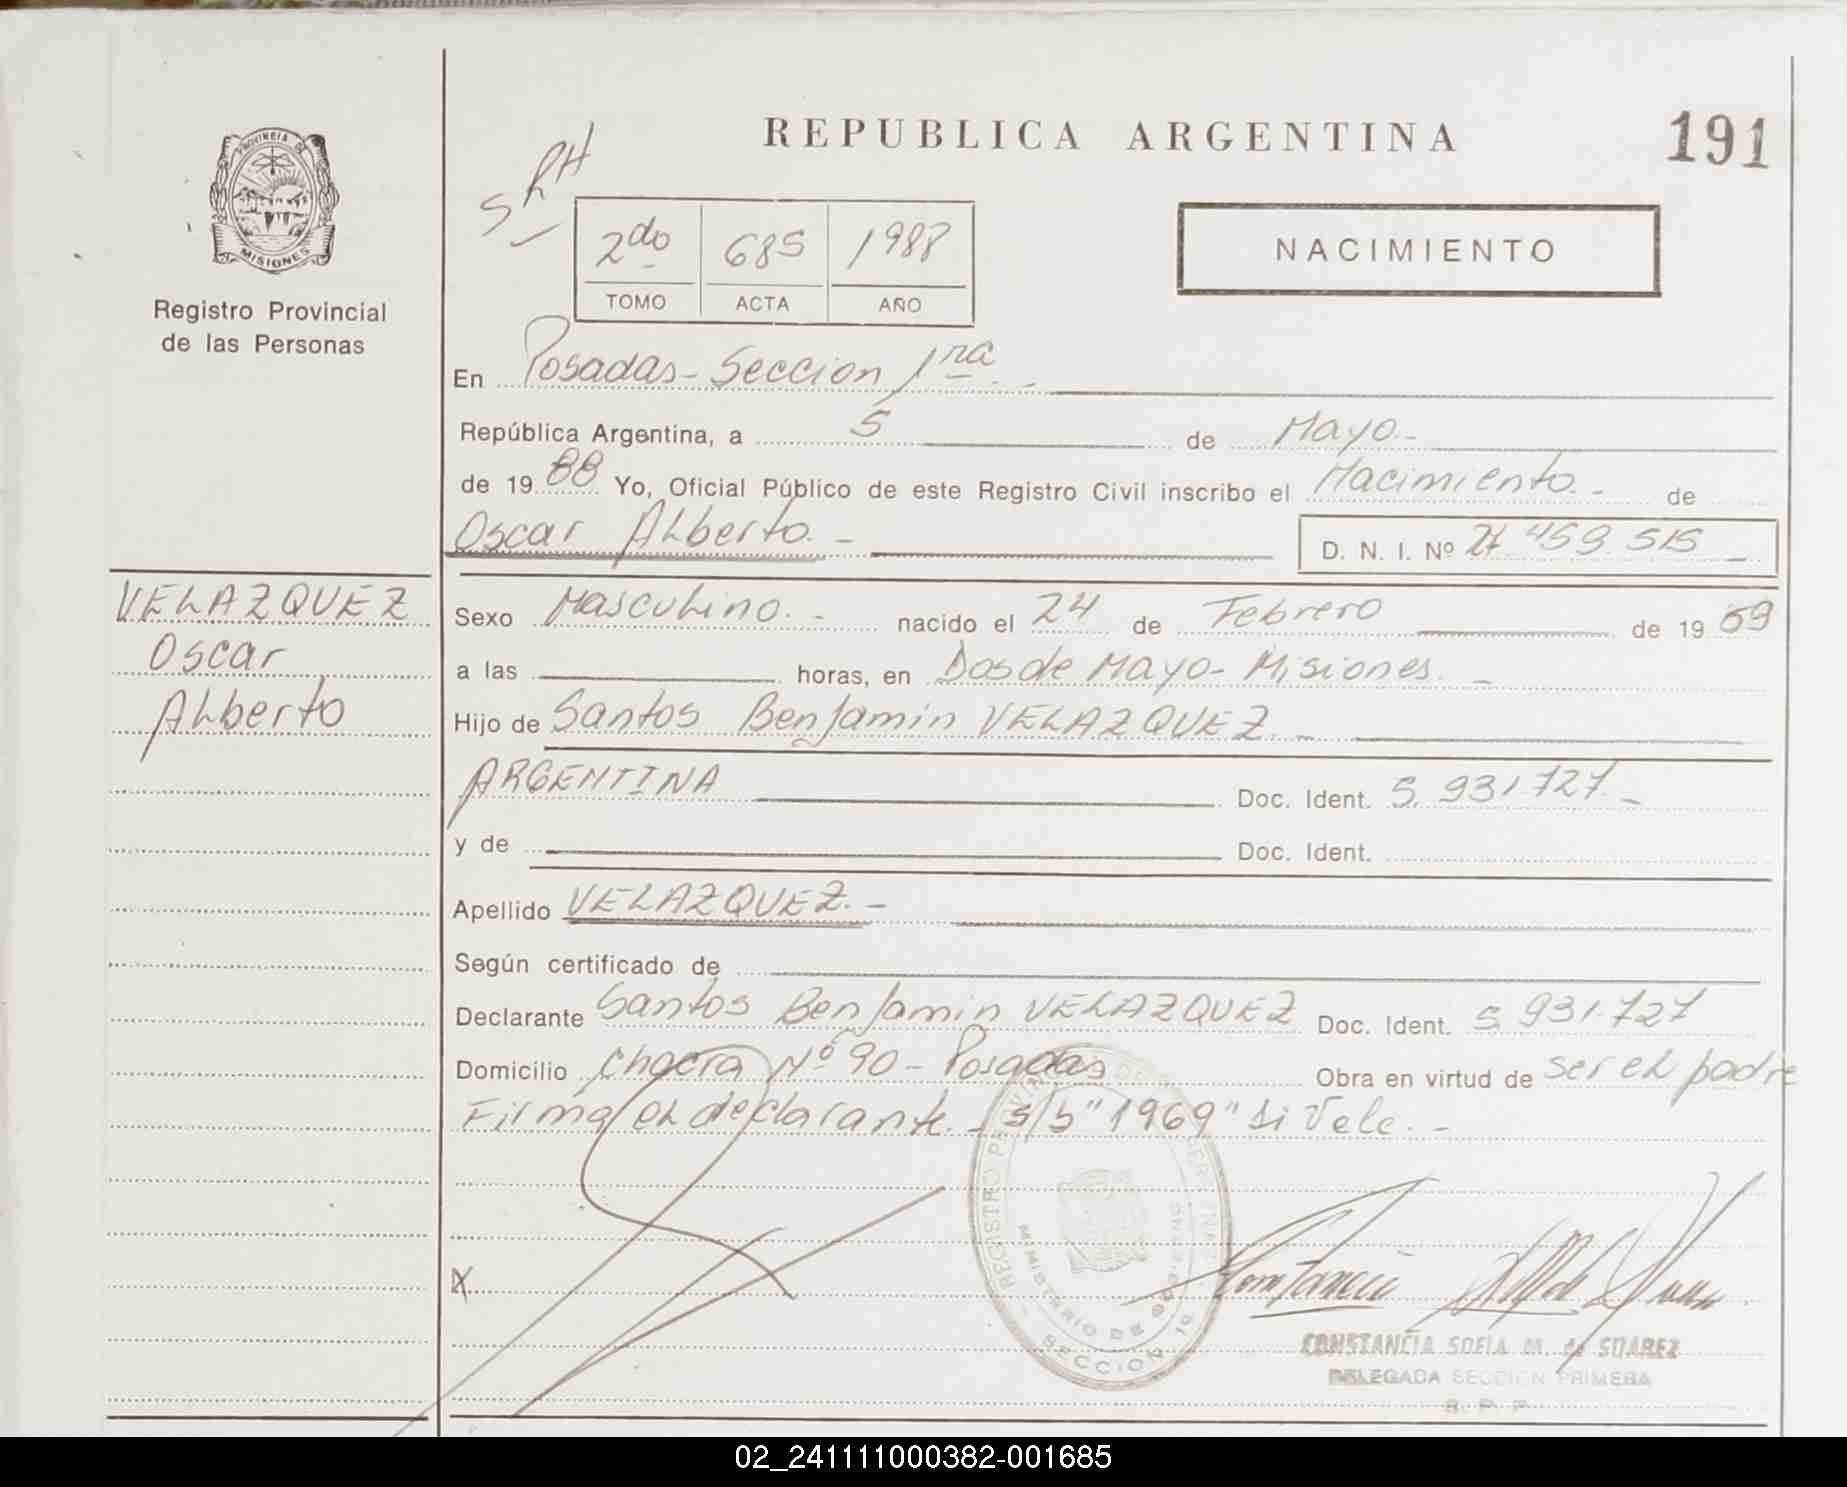 REPUBLICA ARGENTINA
191
PROVINCIA DE
MISIONES
Registro Provincial
de las Personas
SRH
2do 685 1988
TOMO ACTA AÑO
NACIMIENTO
En Posadas - Seccion 1ra. -
República Argentina, a 5 de Mayo. -
de 19 88 Yo, Oficial Público de este Registro Civil inscribo el Nacimiento. - de
Oscar Alberto. -
D. N. I. Nº 21 459 515 -
VELAZQUEZ
Oscar
Alberto
Sexo Masculino. - nacido el 24 de Febrero de 19 69
a las horas, en Dos de Mayo - Misiones. -
Hijo de Santos Benjamin VELAZQUEZ. -
ARGENTINA Doc. Ident. 5. 931 727. -
y de Doc. Ident.
Apellido VELAZQUEZ. -
Según certificado de
Declarante Santos Benjamin VELAZQUEZ Doc. Ident. 5. 931.727
Domicilio Chacra Nº 90 - Posadas Obra en virtud de ser el padre
Firma el declarante. - s/b "1969" Si Vele. -
X
REGISTRO
MINISTERIO DE GOBIERNO
SECCION 1º
CONSTANCIA SOFIA M. de SUAREZ
DELEGADA SECCION PRIMERA
R. P. P.
02_241111000382-001685